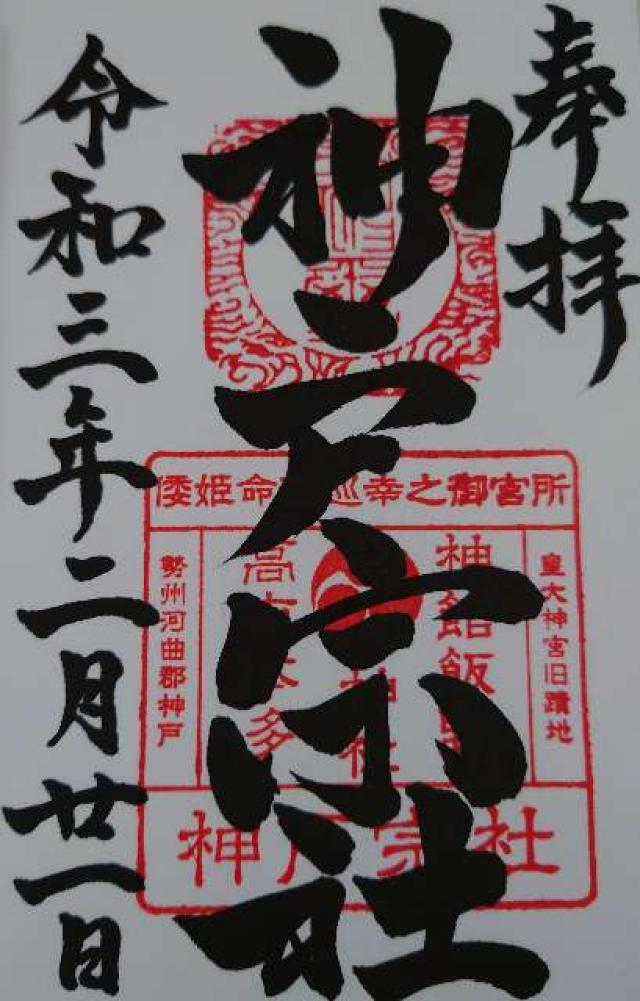 奉拝
神戸宗社
令和三年二月廿一日
倭姫命 巡幸之御宮所
皇大神宮旧蹟地
神館飯
高 多
神社
勢州河曲郡神戸
神戸宗社